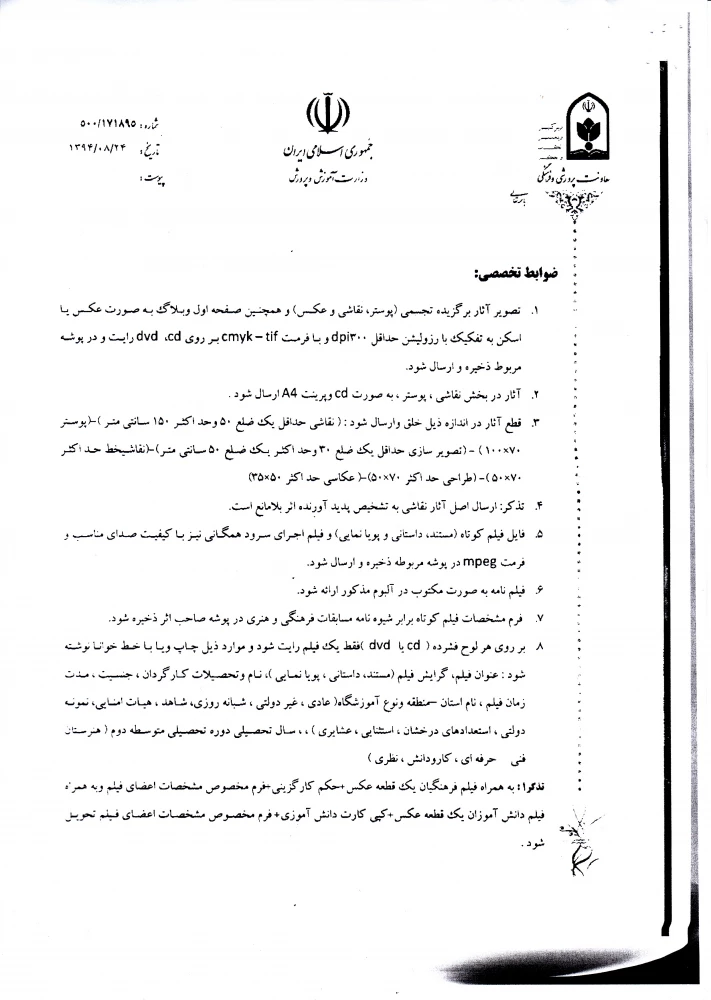 جمهوری اسلامی ایران
وزارت آموزش و پرورش
معاونت پرورشی و فرهنگی
شماره : ۵۰۰/۱۷۱۸۹۵
تاریخ : ۱۳۹۴/۰۸/۲۴
پیوست :
ضوابط تخصصی:
۱. تصویر آثار برگزیده تجسمی (پوستر، نقاشی و عکس) و همچنین صفحه اول وبلاگ به صورت عکس یا
اسکن به تفکیک با رزولیشن حداقل dpi۳۰۰ و با فرمت cmyk – tif بر روی dvd ،cd رایت و در پوشه
مربوط ذخیره و ارسال شود.
۲. آثار در بخش نقاشی ، پوستر ، به صورت cd وپرینت A4 ارسال شود .
۳. قطع آثار در اندازه ذیل خلق وارسال شود : ( نقاشی حداقل یک ضلع ۵۰ وحد اکثر ۱۵۰ سانتی متر )-(پوستر
۱۰۰×۷۰ ) - (تصویر سازی حداقل یک ضلع ۳۰ وحد اکثر یک ضلع ۵۰ سانتی متر)-(نقاشیخط حد اکثر
۵۰×۷۰ )- (طراحی حد اکثر ۷۰×۵۰)-( عکاسی حد اکثر ۵۰×۳۵)
۴. تذکر: ارسال اصل آثار نقاشی به تشخیص پدید آورنده اثر بلامانع است.
۵. فایل فیلم کوتاه (مستند، داستانی و پویا نمایی) و فیلم اجرای سرود همگانی نیز با کیفیت صدای مناسب و
فرمت mpeg در پوشه مربوطه ذخیره و ارسال شود.
۶. فیلم نامه به صورت مکتوب در آلبوم مذکور ارائه شود.
۷. فرم مشخصات فیلم کوتاه برابر شیوه نامه مسابقات فرهنگی و هنری در پوشه صاحب اثر ذخیره شود.
۸. بر روی هر لوح فشرده ( cd یا dvd )فقط یک فیلم رایت شود و موارد ذیل چاپ ویا با خط خوانا نوشته
شود : عنوان فیلم، گرایش فیلم (مستند، داستانی ، پویا نمایی )، نام وتحصیلات کارگردان ، جنسیت ، مدت
زمان فیلم ، نام استان –منطقه ونوع آموزشگاه( عادی ، غیر دولتی ، شبانه روزی، شاهد ، هیات امنایی، نمونه
دولتی ، استعدادهای درخشان ، استثنایی ، عشایری ) ، ، سال تحصیلی دوره تحصیلی متوسطه دوم ( هنرستان
فنی حرفه ای ، کارودانش ، نظری )
تذکر۱: به همراه فیلم فرهنگیان یک قطعه عکس+حکم کارگزینی+فرم مخصوص مشخصات اعضای فیلم وبه همراه
فیلم دانش آموزان یک قطعه عکس+کپی کارت دانش آموزی+ فرم مخصوص مشخصات اعضای فیلم تحویل
شود .